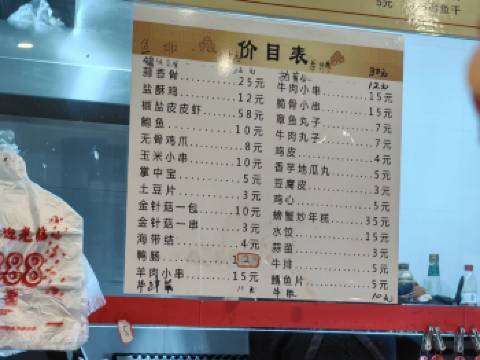 5元
价目表
30元
12元
蒜香骨 25元
盐酥鸡 12元
椒盐皮皮虾 58元
鲍鱼 10元
无骨鸡爪 8元
玉米小串 10元
掌中宝 5元
土豆片 3元
金针菇一包 10元
金针菇一串 3元
海带结 4元
鸭肠 12元
羊肉小串 15元
牛肉小串 15元
脆骨小串 15元
章鱼丸子 7元
牛肉丸子 7元
鸡皮 4元
香芋地瓜丸 5元
豆腐皮 3元
鸡心 5元
螃蟹炒年糕 35元
水饺 15元
蒜苗 3元
牛排 5元
鳕鱼片 5元
10元